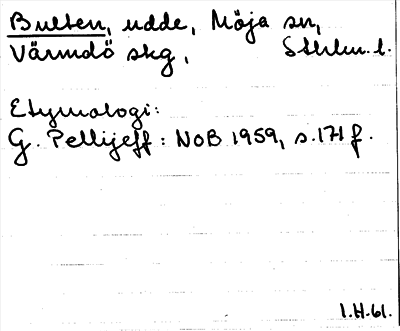 Bulten, udde, Möja sn,
Värmdö skg, Sthlm. l.
Etymologi:
G. Pellijeff: NoB 1959, s. 171 f.
I.H-61.